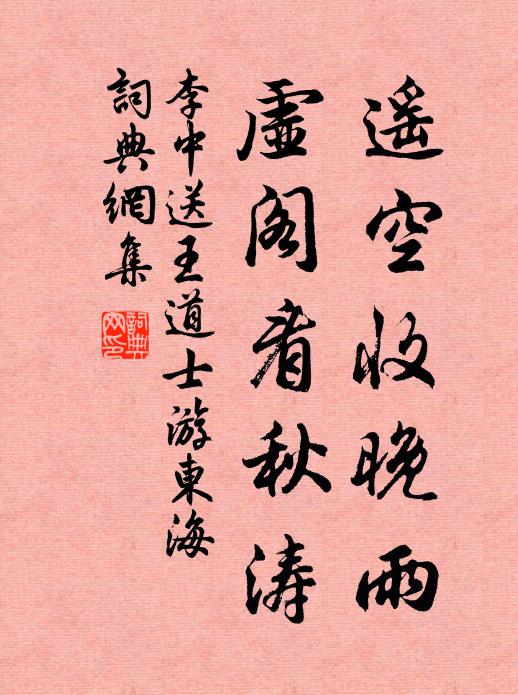 遥空收晚雨
虛阁看秋涛
李中送王道士游東海
詞典網集
詞典网印